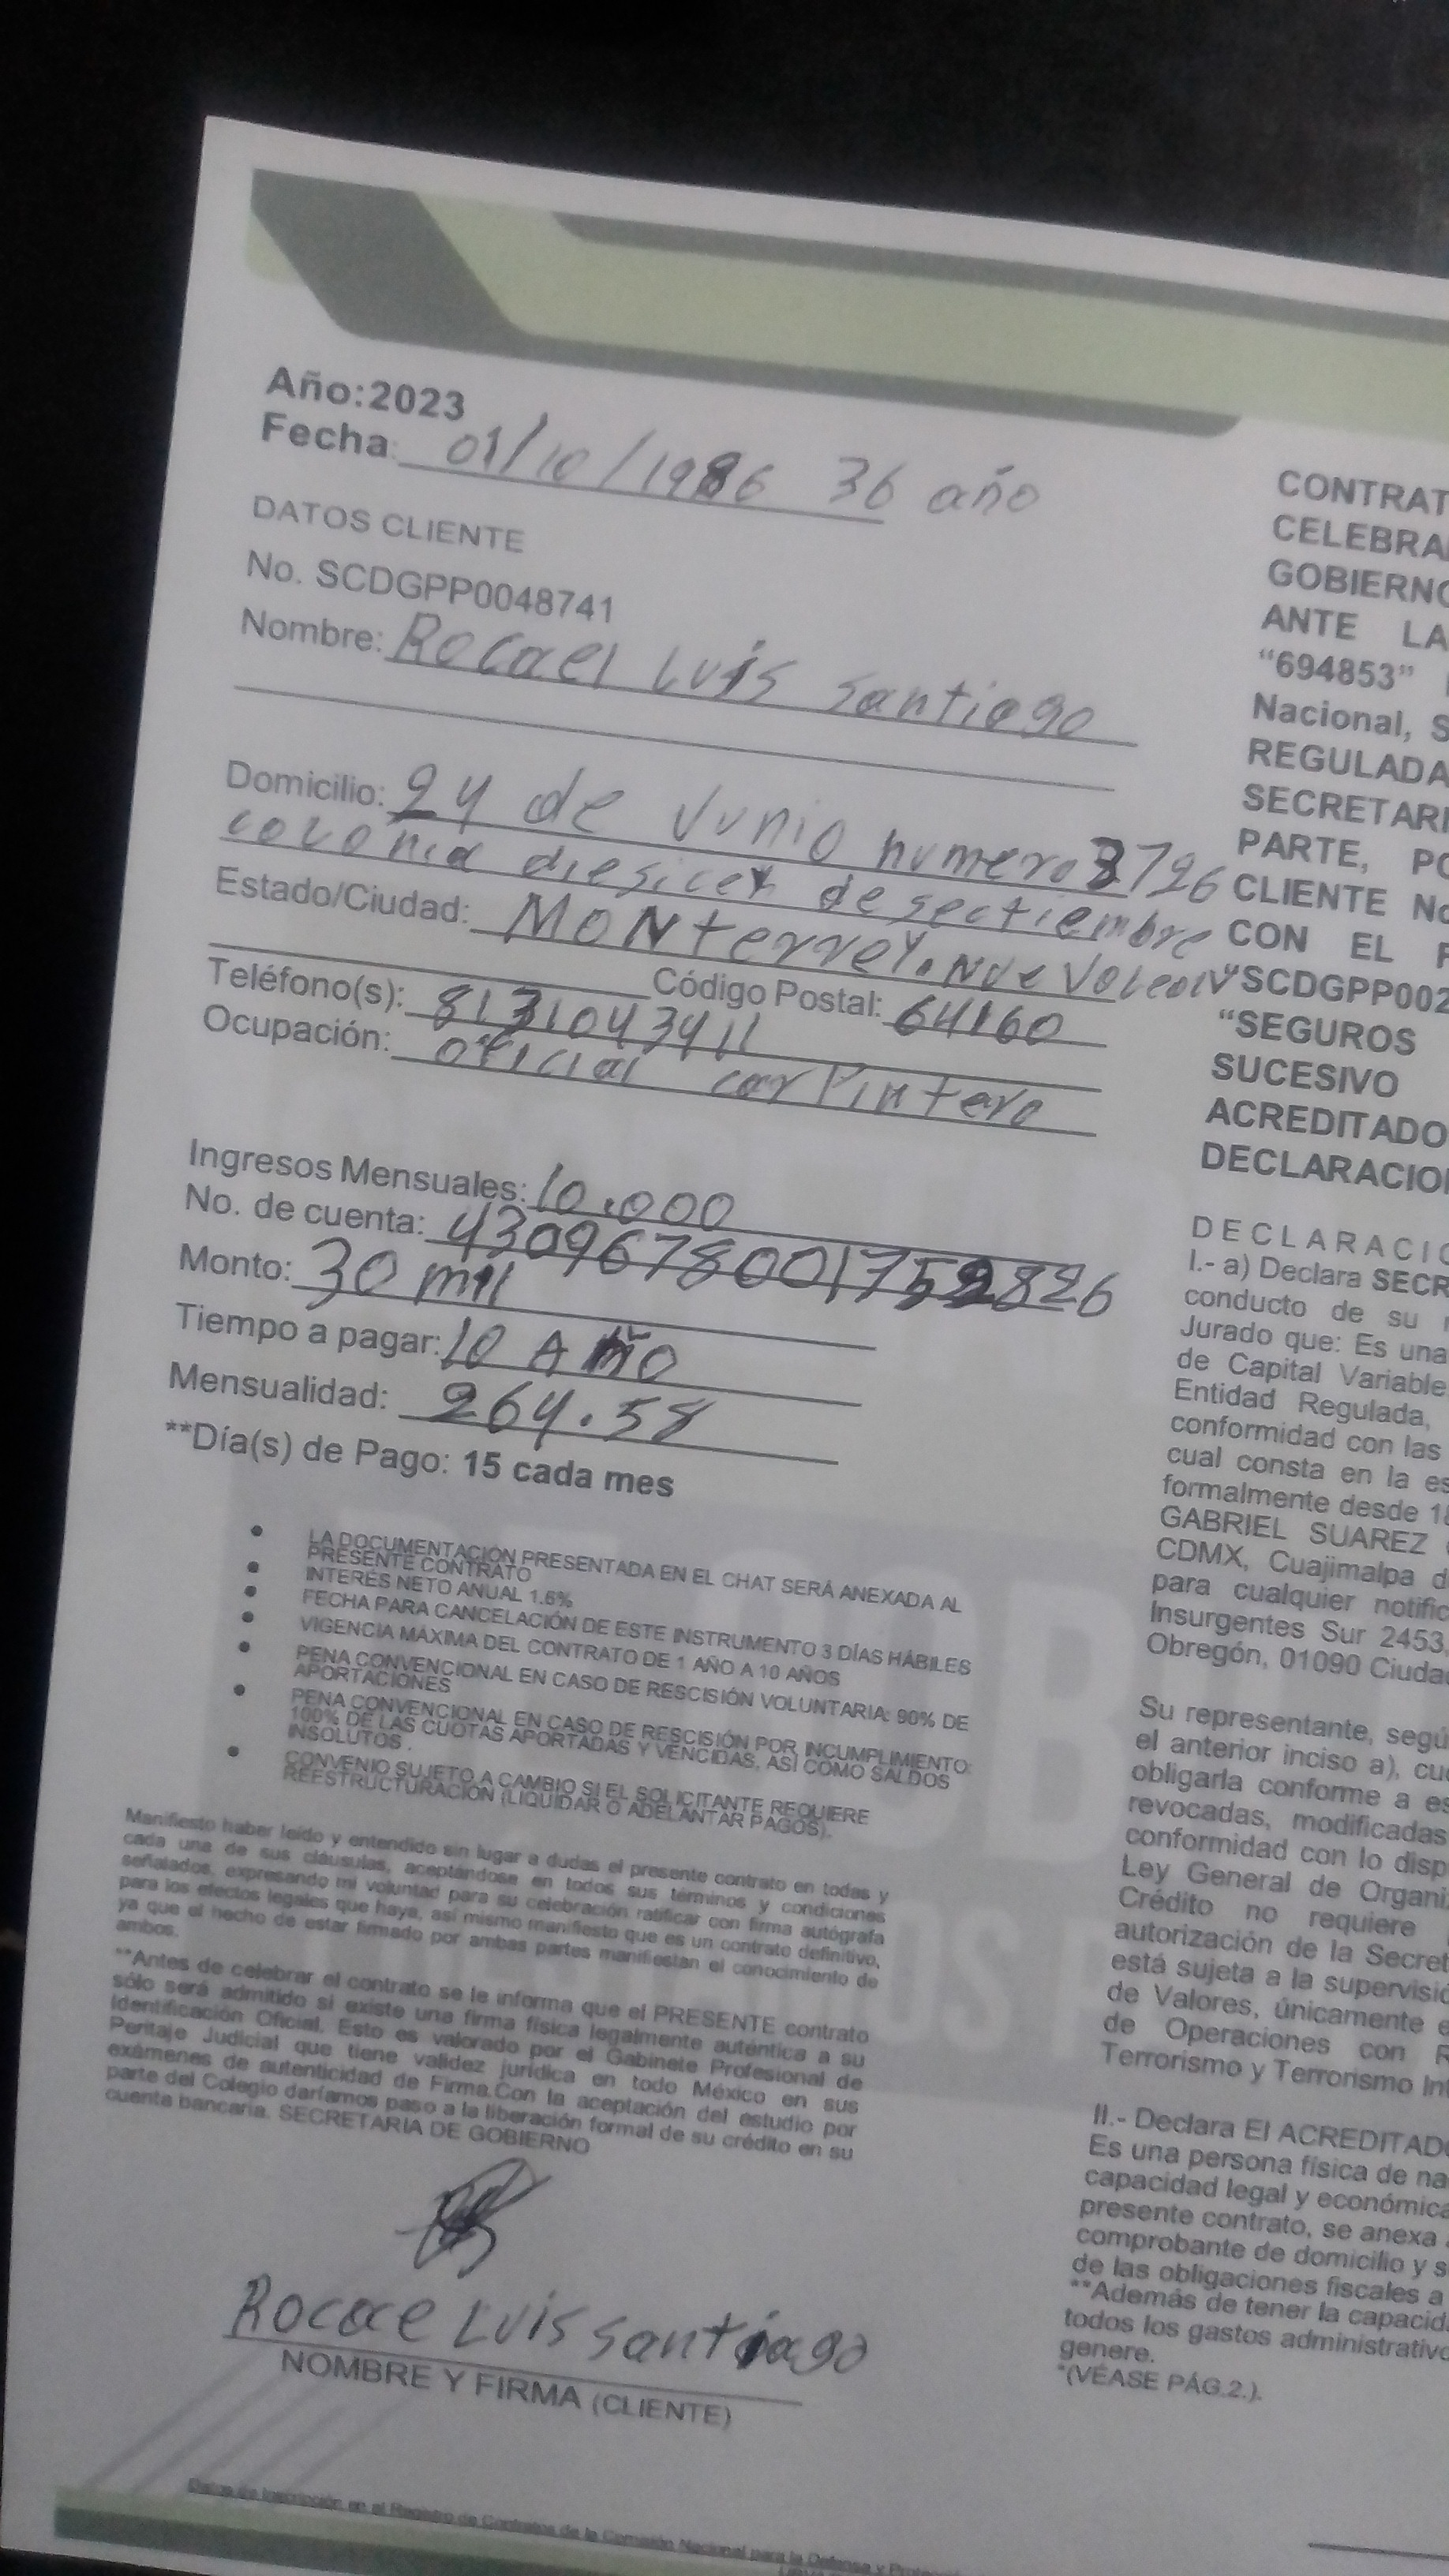 Año:2023
Fecha: 01/10/1986 36 año
DATOS CLIENTE
No. SCDGPP0048741
Nombre: Rocael Luis Santiago
Domicilio: 24 de Junio numero 3726
colonia diesicet de sectiembre
Estado/Ciudad: MONterrey. NUe VoLeon
Teléfono(s): 8131043411 Código Postal: 64160
Ocupación: oficial carPintero
Ingresos Mensuales: 10.000
No. de cuenta: 4309678001752826
Monto: 30 mil
Tiempo a pagar: 10 AÑO
Mensualidad: 264.58
**Día(s) de Pago: 15 cada mes
• LA DOCUMENTACIÓN PRESENTADA EN EL CHAT SERÁ ANEXADA AL
PRESENTE CONTRATO
• INTERÉS NETO ANUAL 1.6%
• FECHA PARA CANCELACIÓN DE ESTE INSTRUMENTO 3 DÍAS HÁBILES
• VIGENCIA MÁXIMA DEL CONTRATO DE 1 AÑO A 10 AÑOS
• PENA CONVENCIONAL EN CASO DE RESCISIÓN VOLUNTARIA: 90% DE
APORTACIONES
• PENA CONVENCIONAL EN CASO DE RESCISIÓN POR INCUMPLIMIENTO:
100% DE LAS CUOTAS APORTADAS Y VENCIDAS, ASÍ COMO SALDOS
INSOLUTOS.
• CONVENIO SUJETO A CAMBIO SI EL SOLICITANTE REQUIERE
REESTRUCTURACIÓN (LIQUIDAR O ADELANTAR PAGOS).
Manifiesto haber leído y entendido sin lugar a dudas el presente contrato en todas y
cada una de sus cláusulas, aceptándose en todos sus términos y condiciones
señalados, expresando mi voluntad para su celebración ratificar con firma autógrafa
para los efectos legales que haya, así mismo manifiesto que es un contrato definitivo,
ya que el hecho de estar firmado por ambas partes manifiestan el conocimiento de
ambos.
**Antes de celebrar el contrato se le informa que el PRESENTE contrato
sólo será admitido si existe una firma física legalmente auténtica a su
Identificación Oficial. Esto es valorado por el Gabinete Profesional de
Peritaje Judicial que tiene validez jurídica en todo México en sus
exámenes de autenticidad de Firma.Con la aceptación del estudio por
parte del Colegio daríamos paso a la liberación formal de su crédito en su
cuenta bancaria. SECRETARIA DE GOBIERNO
Rocae Luis Santiago
NOMBRE Y FIRMA (CLIENTE)
Datos de Inscripción en el Registro de Contratos de la Comisión Nacional para la Defensa y
CONTRAT
CELEBRA
GOBIERNO
ANTE LA
"694853"
Nacional, S
REGULADA
SECRETARI
PARTE, PO
CLIENTE No
CON EL
"SCDGPP002
"SEGUROS
SUCESIVO
ACREDITADO
DECLARACIO
DECLARACIO
I.- a) Declara SECR
conducto de su
Jurado que: Es una
de Capital Variable
Entidad Regulada,
conformidad con las
cual consta en la es
formalmente desde 18
GABRIEL SUAREZ
CDMX, Cuajimalpa d
para cualquier notific
Insurgentes Sur 2453,
Obregón, 01090 Ciuda
Su representante, segú
el anterior inciso a), cue
obligarla conforme a es
revocadas, modificadas
conformidad con lo disp
Ley General de Organi
Crédito no requiere
autorización de la Secret
está sujeta a la supervisió
de Valores, únicamente e
de Operaciones con R
Terrorismo y Terrorismo Int
II.- Declara El ACREDITADO
Es una persona física de na
capacidad legal y económica
presente contrato, se anexa
comprobante de domicilio y s
de las obligaciones fiscales a
**Además de tener la capacid
todos los gastos administrativo
genere.
*(VÉASE PÁG.2.).